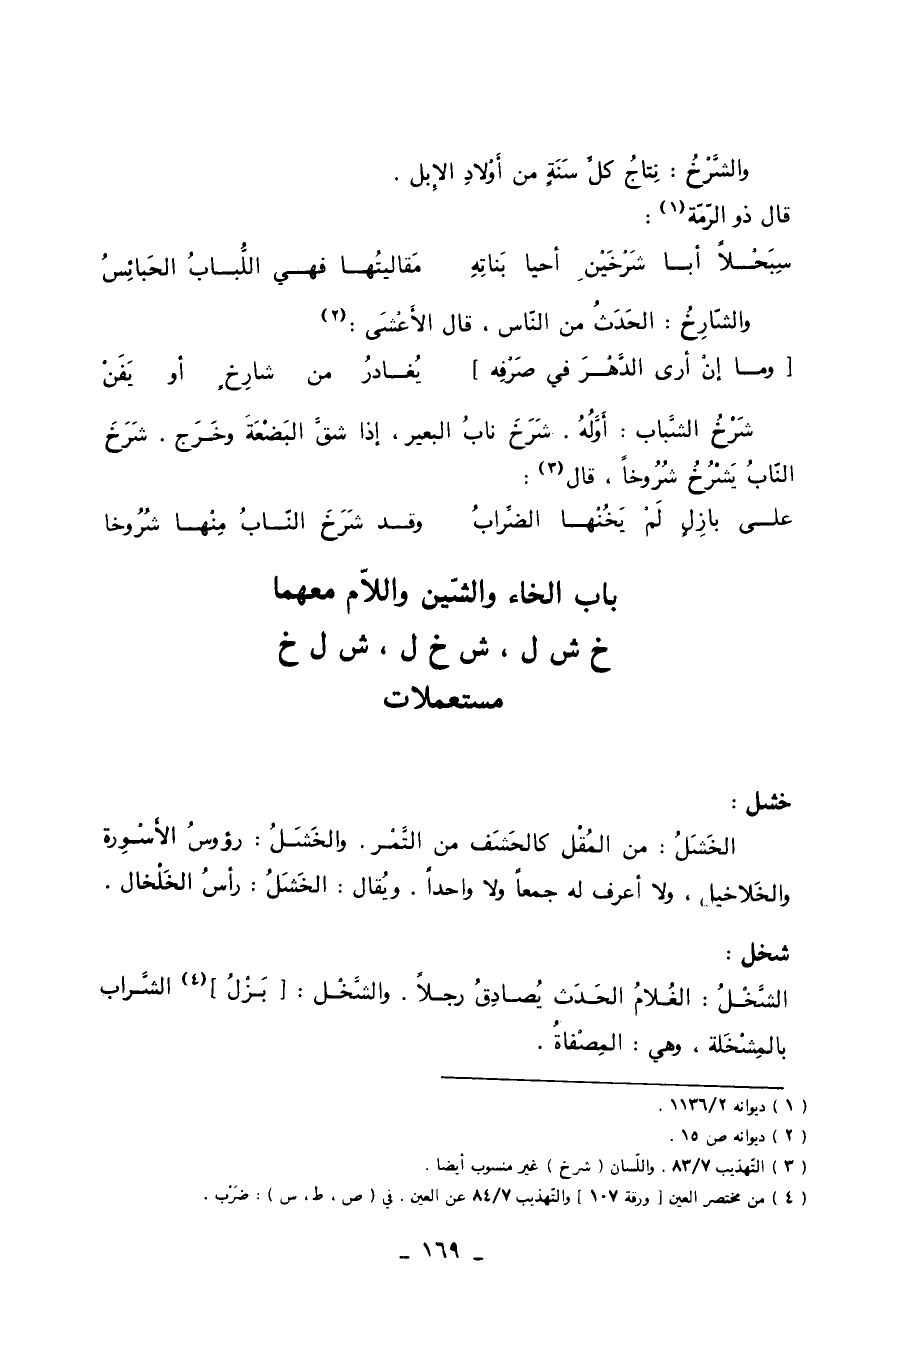 والشَّرْخُ : نِتاجُ كلِّ سَنَةٍ من أَوْلادِ الإبل .
قال ذو الرّمّة(١) :
سِبَحْـلاً أبـا شَرْخَيْنِ أحيا بَناتِهِ مَقاليتُهـا فهـي اللُّبـابُ الحَبائِسُ
والشّارِخُ : الحَدَثُ من النّاس ، قال الأَعْشَى :(٢)
[ ومـا إنْ أرى الدَّهْـرَ في صَرْفِه ] يُغـادرُ من شارِخٍ أو يَفَنْ
شَرْخُ الشَّباب : أَوَّلُهُ . شَرَخَ نابُ البعير ، إذا شقَّ البَضْعَةَ وخَـرَج . شَرَخَ
النّابُ يَشْرُخُ شُرُوخاً ، قال(٣) :
علـى بازِلٍ لَمْ يَخُنْهـا الضِّرابُ وقـد شَرَخَ النّـابُ مِنْهـا شُرُوخا
باب الخاء والشّين واللاّم معهما
خ ش ل ، ش خ ل ، ش ل خ
مستعملات
خشل :
الخَشَلُ : من المُقْل كالحَشَف من التَّمْـر . والخَشَـلُ : رؤوسُ الأَسْـوِرة
والخَلاخيل ، ولا أعرف له جمعاً ولا واحداً . ويُقال : الخَشَلُ : رأسُ الخَلْخال .
شخل :
الشَّخْـلُ : الغُـلامُ الحَـدَث يُصـادِقُ رجـلاً . والشَّخْـل : [ بَـزْلُ ](٤) الشَّـراب
بالمِشْخَلة ، وهي : المِصْفاةُ .
( ١ ) ديوانه ١١٣٦/٢ .
( ٢ ) ديوانه ص ١٥ .
( ٣ ) التّهذيب ٨٣/٧ . واللّسان ( شرخ ) غير منسوب أيضا .
( ٤ ) من مختصر العين [ ورقة ١٠٧ ] والتّهذيب ٨٤/٧ عن العين . في ( ص ، ط ، س ) : ضَرْب .
ـ ١٦٩ ـ